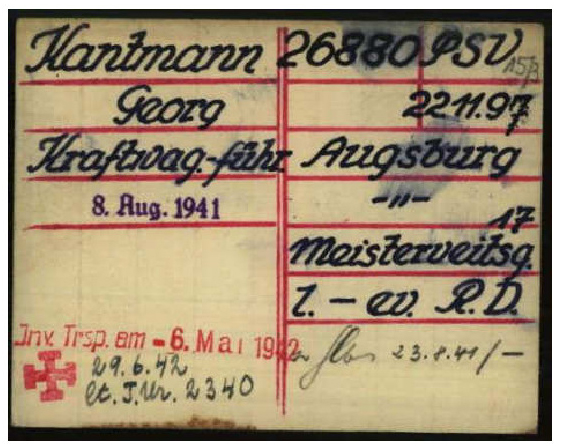 Hantmann 26880 PSV
Georg 22.11.97
Kraftwag.-führ Augsburg
8. Aug. 1941 -"-
17
Meisterveitsg.
1. - ev. R.D.
Inv. Trsp. am - 6. Mai 1942
23.8.41/-
29.6.42
lt. J. Nr. 2340